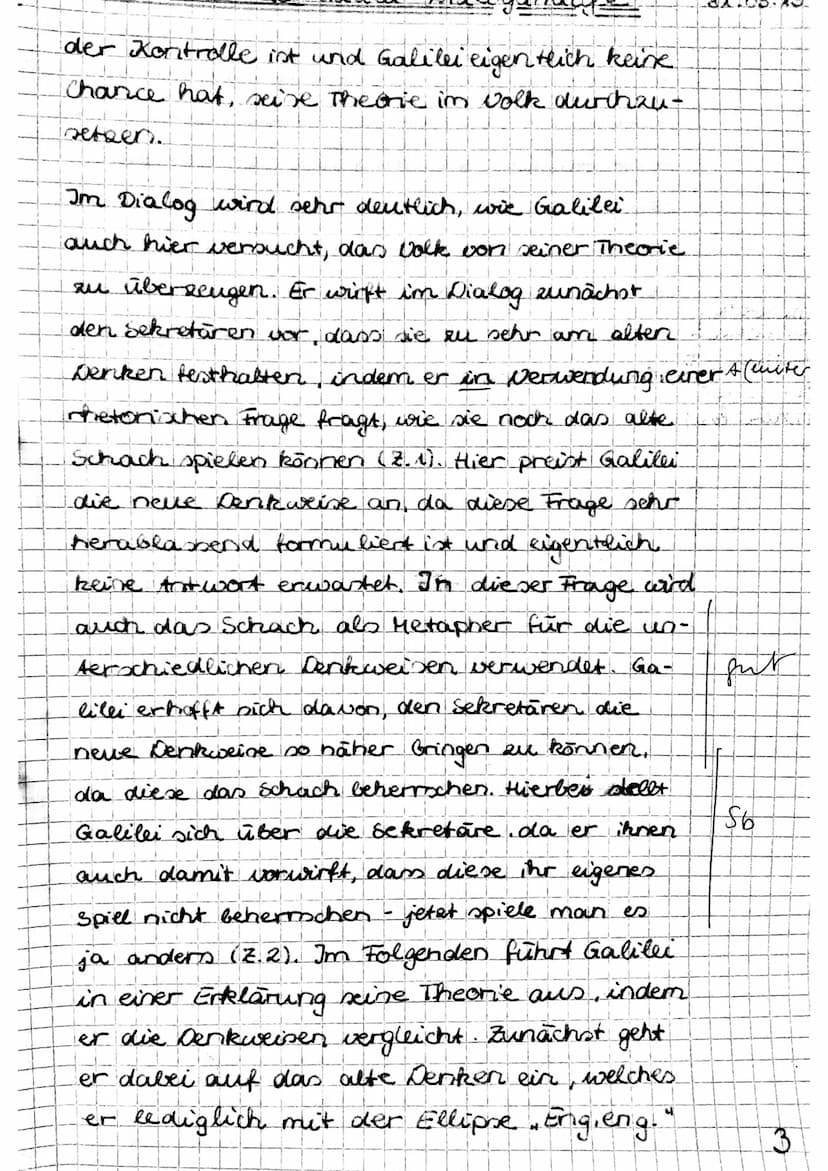 der Kontrolle ist und Galilei eigentlich keine
Chance hat, seine Theorie im Volk durchzu-
setzen.
Im Dialog wird sehr deutlich, wie Galilei
auch hier versucht, das Volk von seiner Theorie
zu überzeugen. Er wirft im Dialog zunächst
den Sekretären vor, dass sie zu sehr am alten
Denken festhalten, indem er in Verwendung einer A (unter
rhetorischen Frage fragt, wie sie noch das alte
Schach spielen können (Z.1). Hier preist Galilei
die neue Denkweise an, da diese Frage sehr
herablassend formuliert ist und eigentlich
keine Antwort erwartet. In dieser Frage wird
auch das Schach als Metapher für die un-
terschiedlichen Denkweisen verwendet. Ga-
gut
lilei erhofft sich davon, den Sekretären die
neue Denkweise so näher bringen zu können,
da diese das Schach beherrschen. Hierbei stellt
Galilei sich über die Sekretäre, da er ihnen
Sb
auch damit vorwirft, dass diese ihr eigenes
Spiel nicht beherrschen - jetzt spiele man es
ja anders (Z.2). Im Folgenden führt Galilei
in einer Erklärung seine Theorie aus, indem
er die Denkweisen vergleicht. Zunächst geht
er dabei auf das alte Denken ein, welches
er lediglich mit der Ellipse „Eng, eng."
3